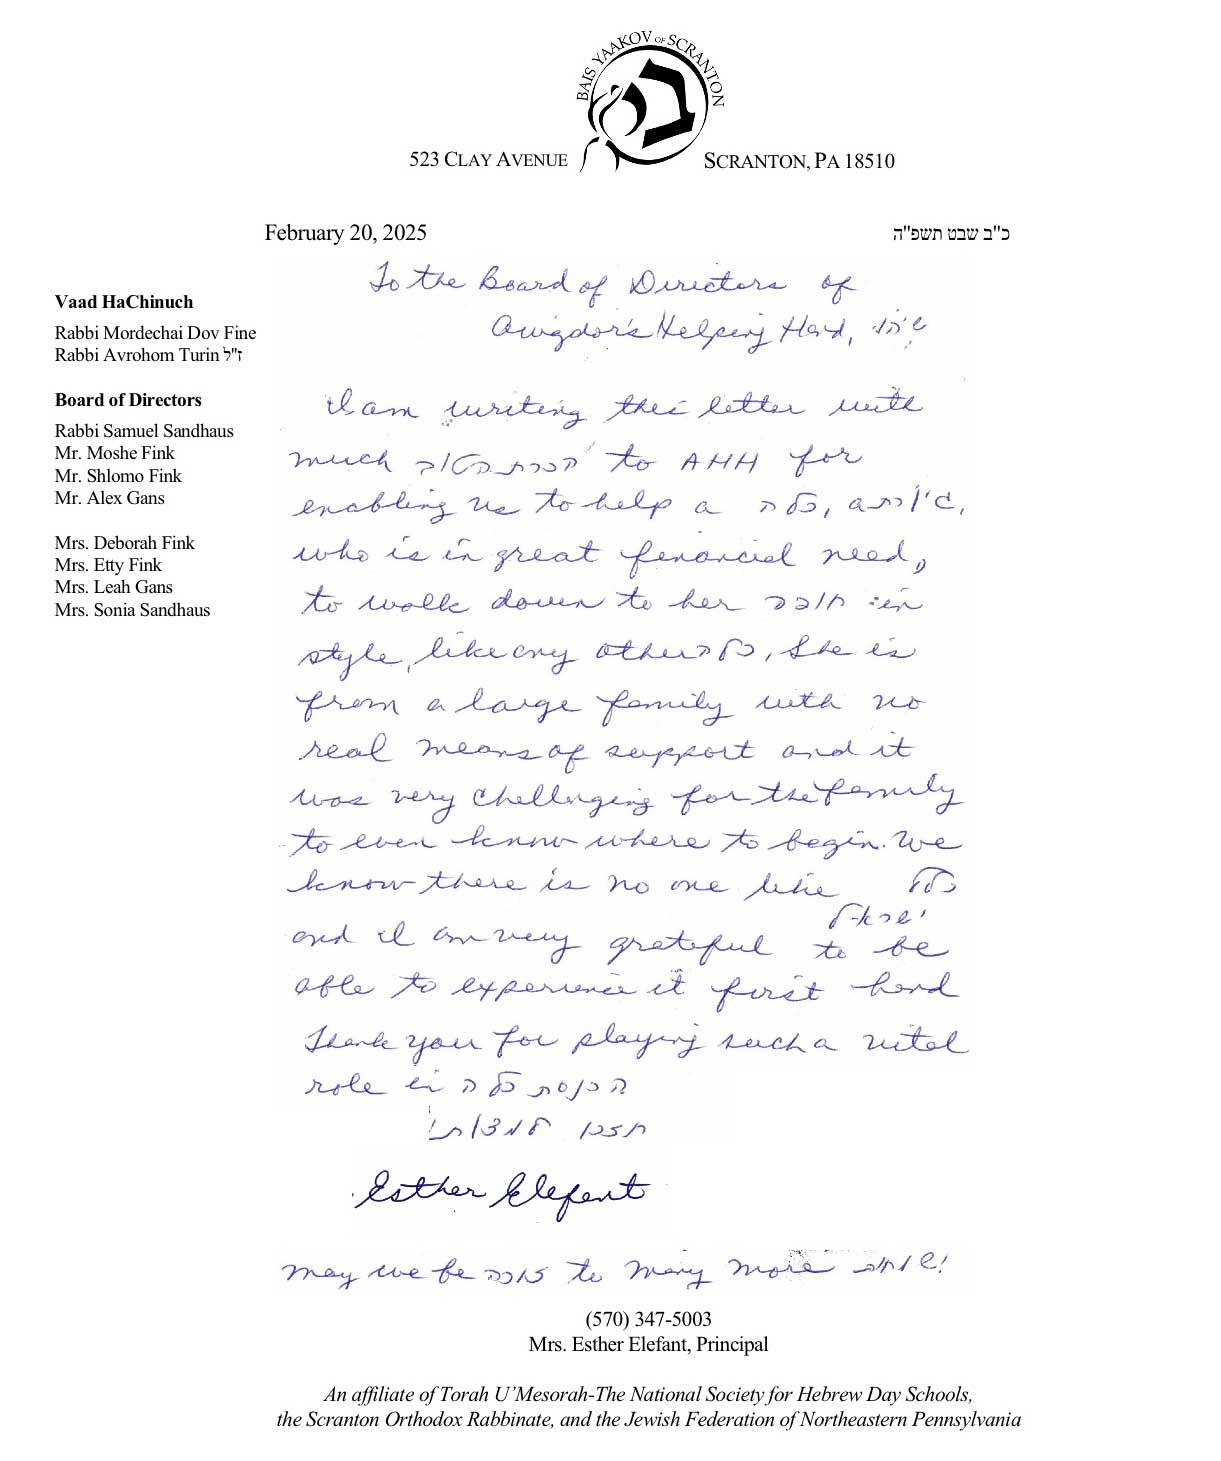 BAIS YAAKOV OF SCRANTON
523 CLAY AVENUE SCRANTON, PA 18510
February 20, 2025 כ"ב שבט תשפ"ה
Vaad HaChinuch
Rabbi Mordechai Dov Fine
Rabbi Avrohom Turin ז"ל
Board of Directors
Rabbi Samuel Sandhaus
Mr. Moshe Fink
Mr. Shlomo Fink
Mr. Alex Gans
Mrs. Deborah Fink
Mrs. Etty Fink
Mrs. Leah Gans
Mrs. Sonia Sandhaus
To the Board of Directors of
Avigdor's Helping Hand, שיחי'
I am writing this letter with
much הכרת הטוב to AHH for
enabling us to help a כלה, a יתומה,
who is in great financial need,
to walk down to her חופה in
style, like any other כלה, She is
from a large family with no
real means of support and it
was very challenging for the family
to even know where to begin. We
know there is no one like כלל
ישראל
and I am very grateful to be
able to experience it first hand
Thank you for playing such a vital
role in הכנסת כלה
תזכו למצות
Esther Elefant
may we be זוכה to many more שמחות!
(570) 347-5003
Mrs. Esther Elefant, Principal
An affiliate of Torah U'Mesorah-The National Society for Hebrew Day Schools,
the Scranton Orthodox Rabbinate, and the Jewish Federation of Northeastern Pennsylvania